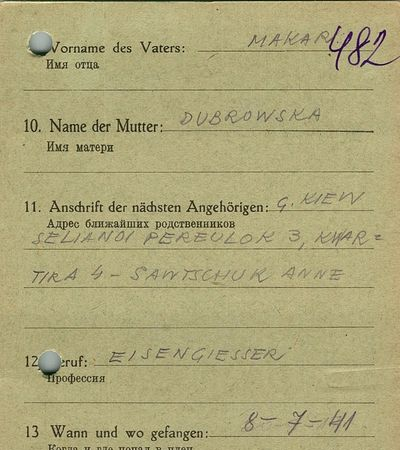 Vorname des Vaters: MAKAR 482
Имя отца
10. Name der Mutter: DUBROWSKA
Имя матери
11. Anschrift der nächsten Angehörigen: g. KIEW
Адрес ближайших родственников
SELIANDI PEREULOK 3, KWAR=
TIRA 4 - SAWTSCHUK ANNE
12 eruf: EISENGIESSER
Профессия
13 Wann und wo gefangen: 8-7-41
Когда и где попал в плен